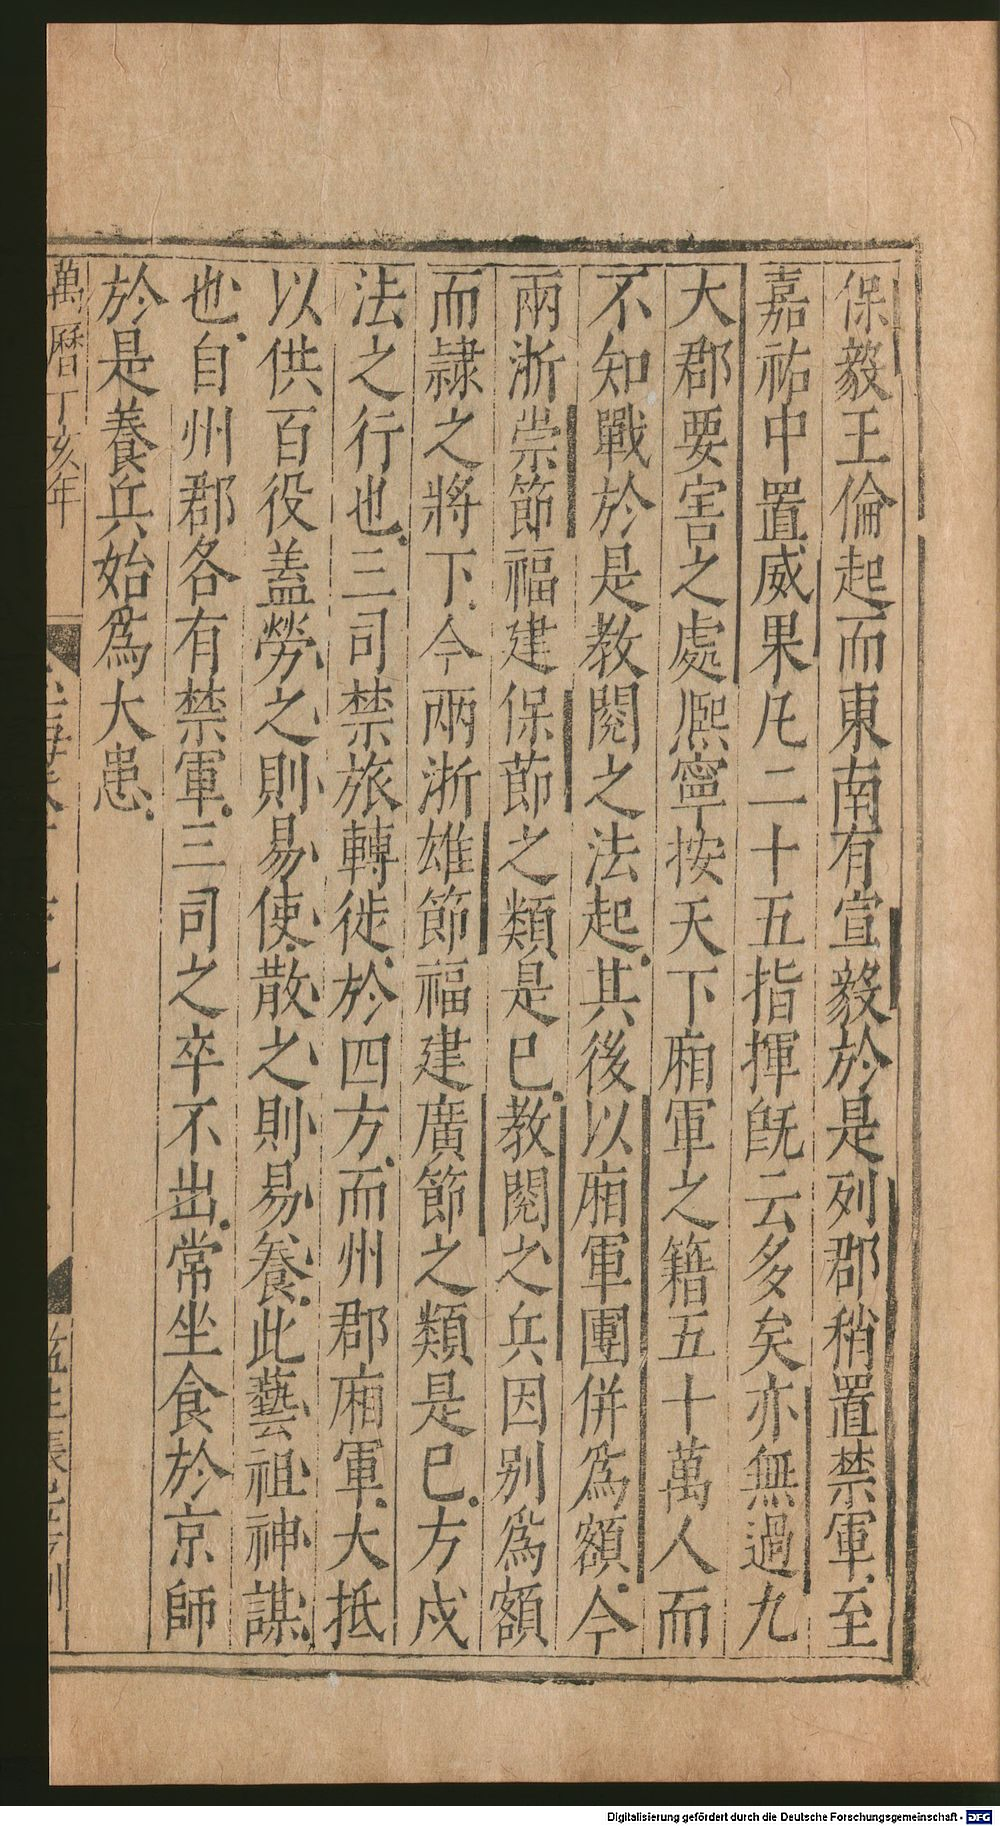 保毅王倫起而東南有宣毅於是列郡稍置禁軍至
嘉祐中置威果凡二十五指揮旣云多矣亦無過九
大郡要害之處熈寧按天下廂軍之籍五十萬人而
不知戰於是教閱之法起其後以廂軍團併爲額今
兩浙崇節福建保節之類是已教閱之兵因别爲額
而隷之將下今兩浙雄節福建廣節之類是已方戍
法之行也三司禁旅轉徙於四方而州郡廂軍大抵
以供百役蓋勞之則易使散之則易養此藝祖神謀
也自州郡各有禁軍三司之卒不出常坐食於京師
於是養兵始爲大患
萬曆丁亥年
Digitalisierung gefördert durch die Deutsche Forschungsgemeinschaft - DFG